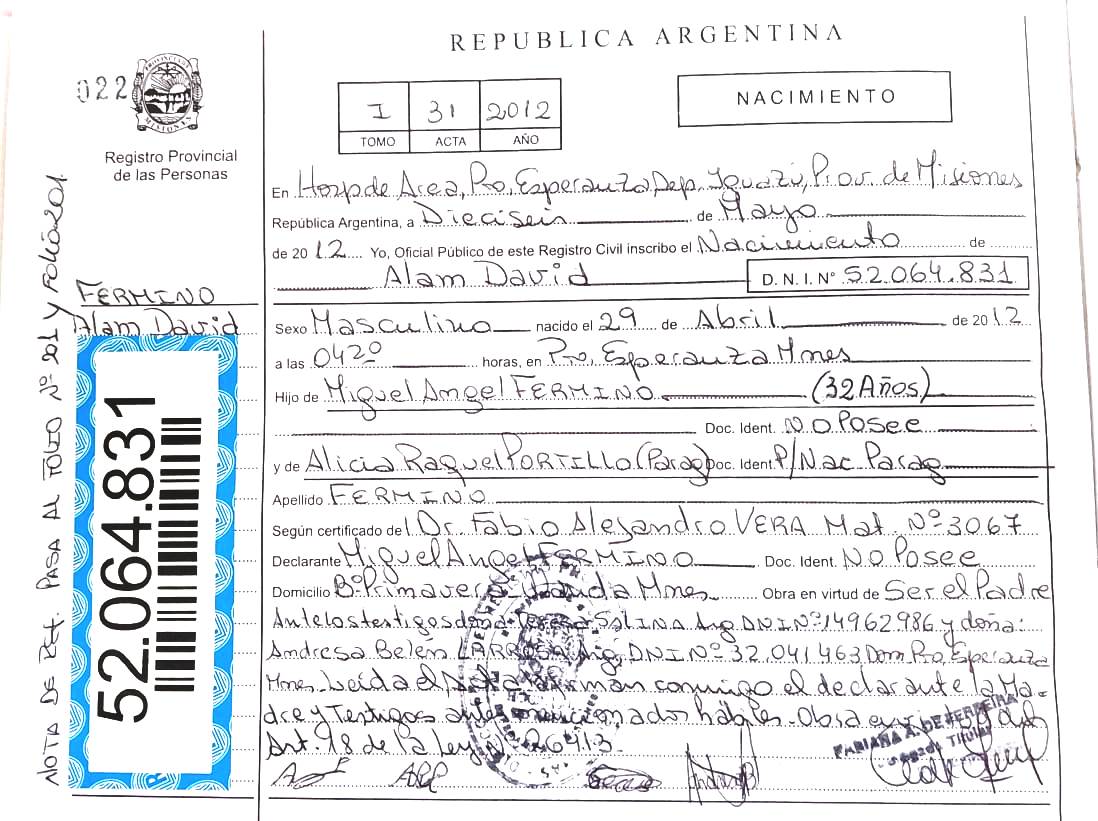 REPUBLICA ARGENTINA
022
PROVINCIA DE
MISIONES
Registro Provincial
de las Personas
I 31 2012
TOMO ACTA AÑO
NACIMIENTO
En Hosp de Area, Pto, Esperanza Dep. Iguazú, Prov. de Misiones
República Argentina, a Dieciseis de Mayo
de 2012 Yo, Oficial Público de este Registro Civil inscribo el Nacimiento de
Alam David D.N.I. Nº 52.064.831
FERMINO
Alam David
Sexo Masculino nacido el 29 de Abril de 2012
a las 0420 horas, en Pto, Esperanza Mnes
Hijo de Miguel Angel FERMINO (32 Años)
Doc. Ident. No Posee
y de Alicia Raquel PORTILLO (Parag) Doc. Ident. P/Nac Parag
Apellido FERMINO
Según certificado de Dr. Fabio Alejandro VERA Mat. Nº 3067
Declarante Miguel Angel FERMINO Doc. Ident. No Posee
Domicilio Bº Primavera Wanda Mnes Obra en virtud de Ser el Padre
Ante los testigos doña Teresa SALINA Arg DNI Nº 14962986 y doña:
Andresa Belen LARROSA Arg, DNI Nº 32.041463 Dom. Pto, Esperanza
Mnes. Leída el Acta firman conmigo el declarante la Ma-
dre y Testigos antes mencionados hábiles. Obra en virtud del
Art. 18 de la Ley Nº 26413.
FABIANA A. DE FERREIRA
Titular
52.064.831
NOTA DE REF. PASA AL FOLIO Nº 201 Y FOLIO 201